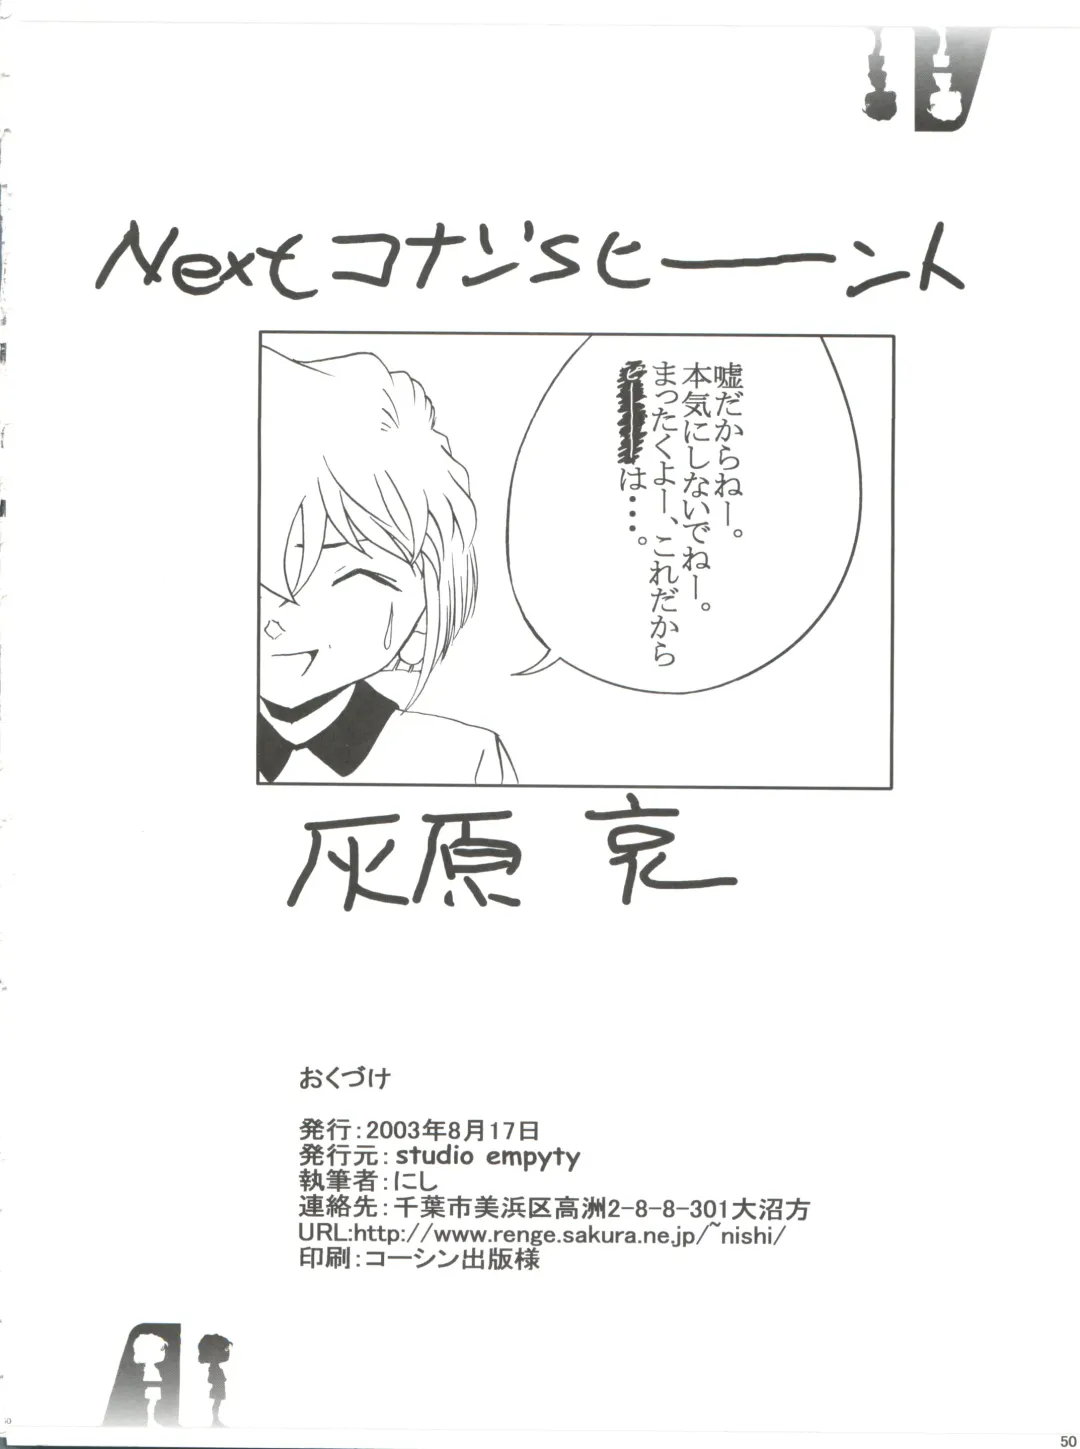 Next コナン'S ヒーーント
嘘だからねー。
本気にしないでねー。
まったくよー、これだから
は・・・。
灰原 哀
おくづけ
発行：2003年8月17日
発行元：studio empyty
執筆者：にし
連絡先：千葉市美浜区高洲2-8-8-301大沼方
URL:http://www.renge.sakura.ne.jp/~nishi/
印刷：コーシン出版様
50